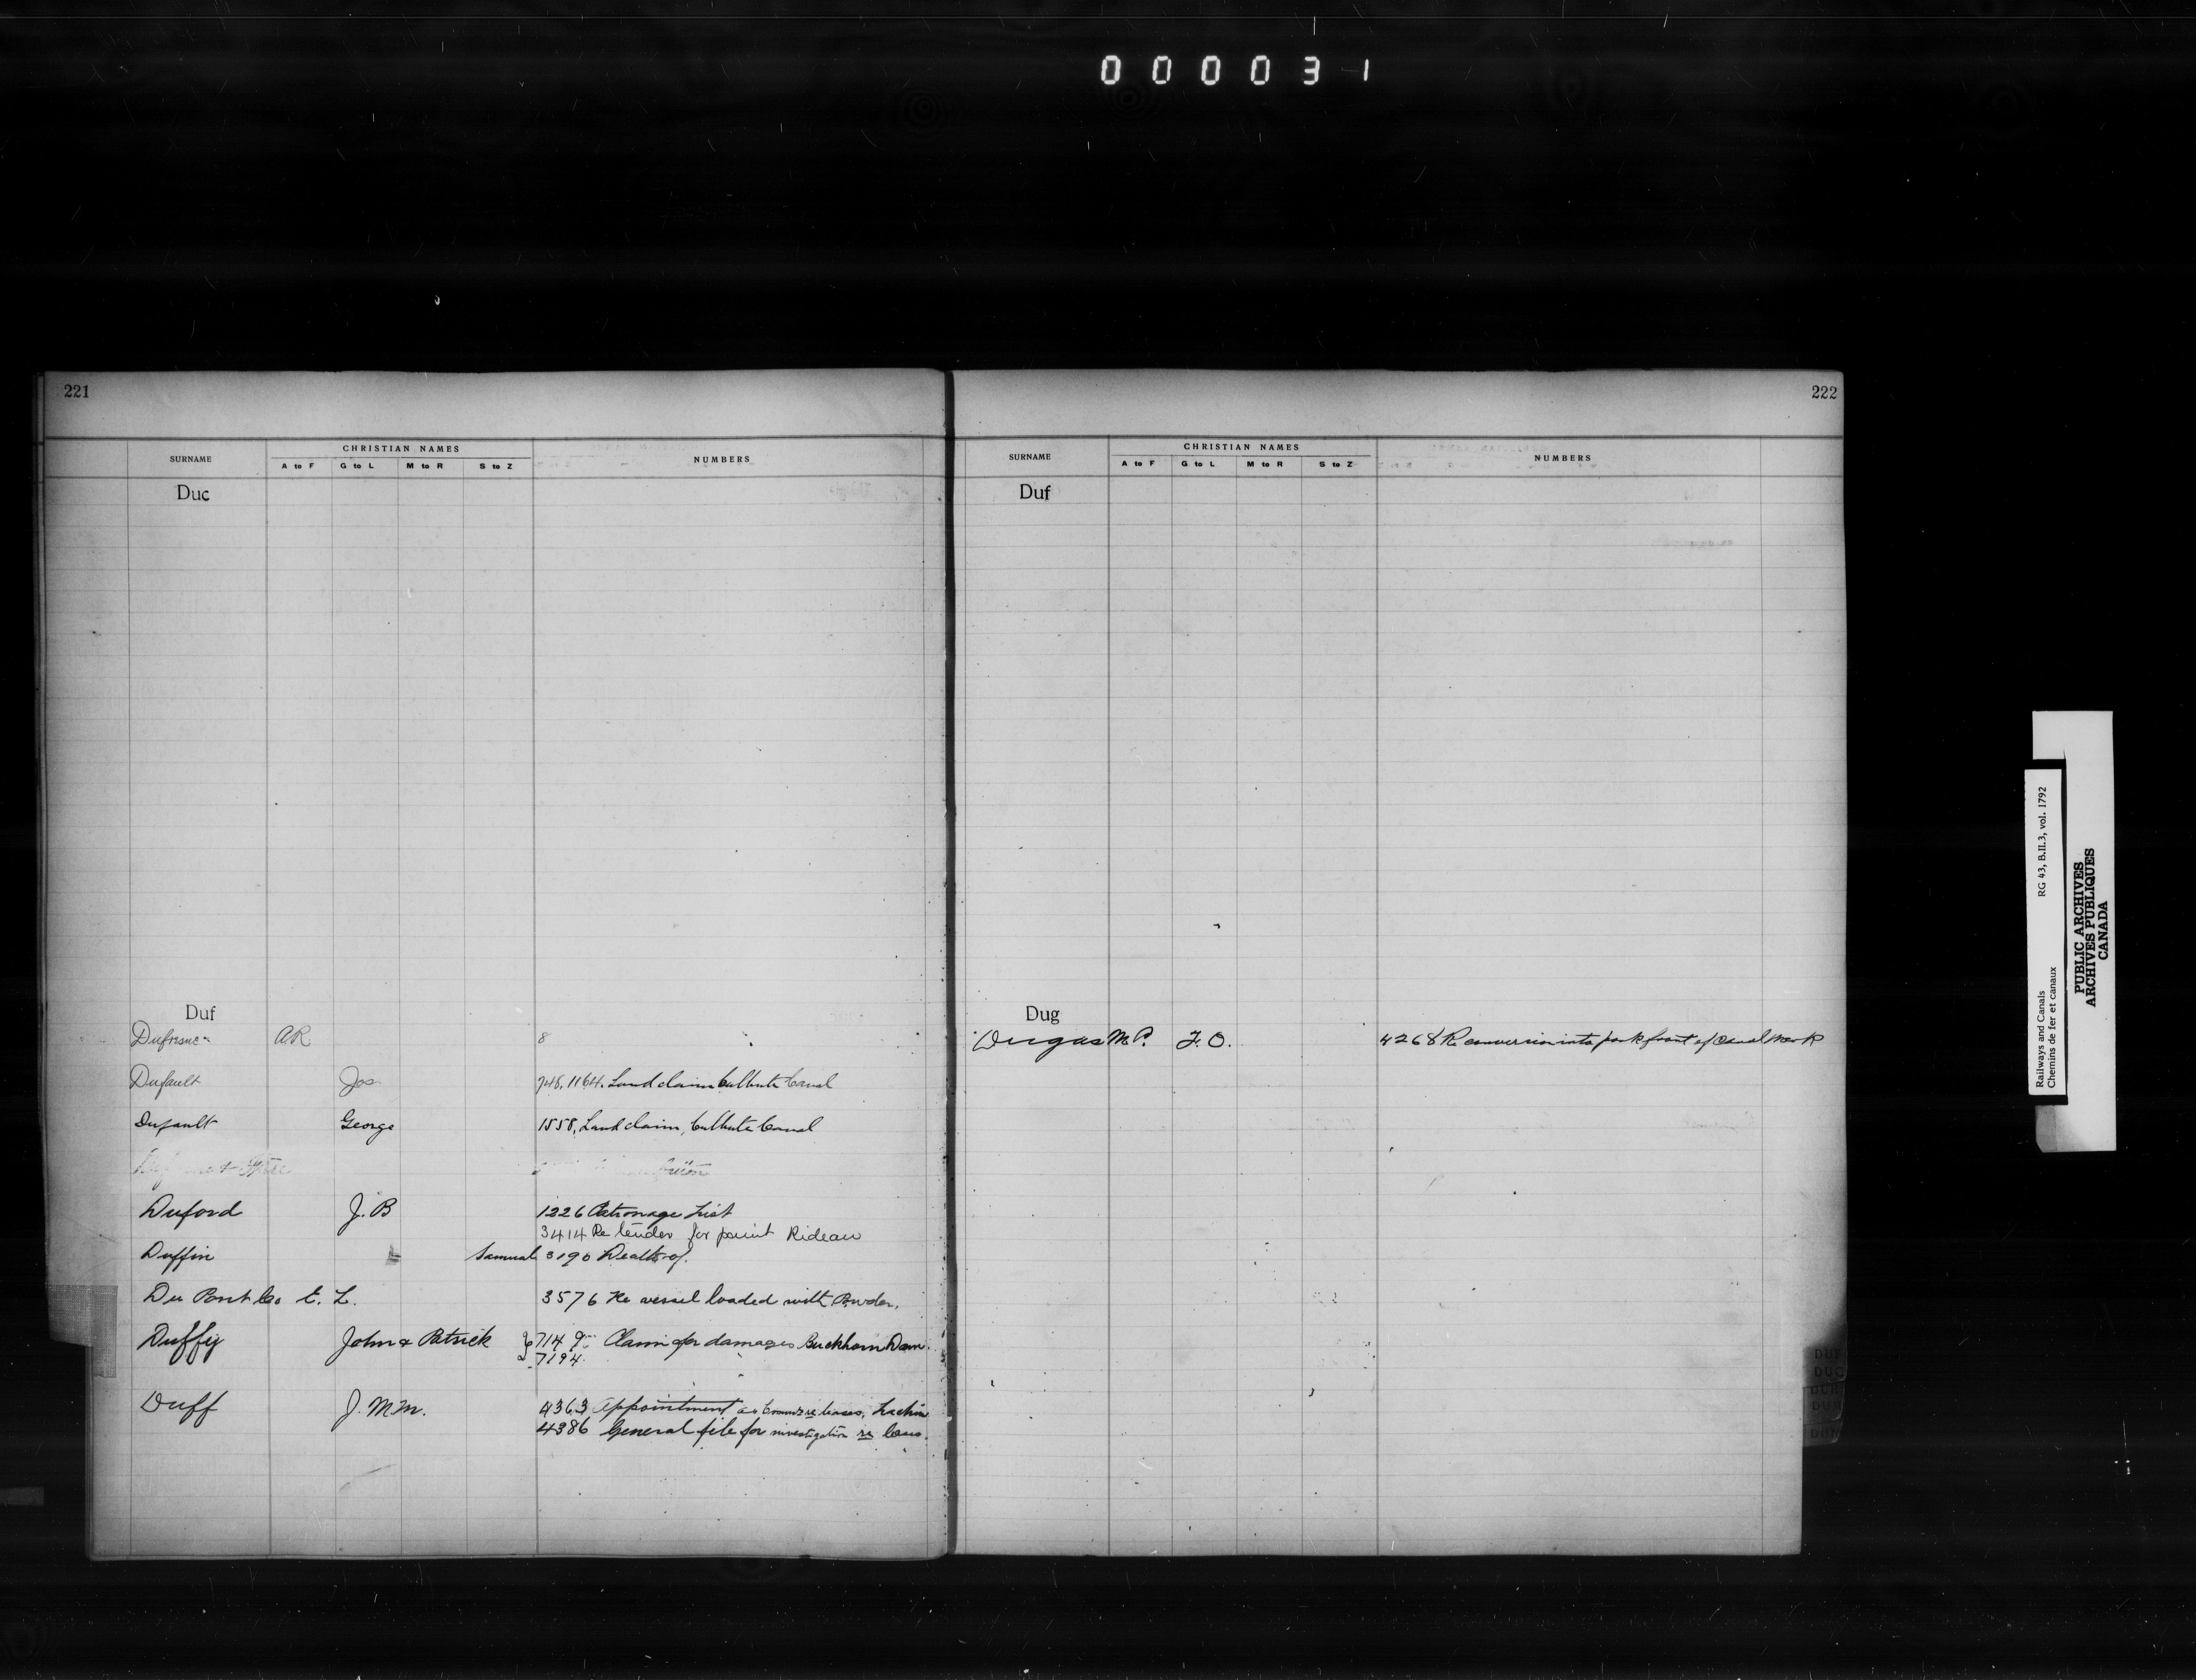 000031
221
SURNAME CHRISTIAN NAMES NUMBERS
A to F G to L M to R S to Z
Duc
Duf
Dufresne A.R. 8
Dufault Jos 748, 1164. Land claim Culbute Canal
Dufault George 1558, Land claim, Culbute Canal
Duford J. B 1226 Patronage List
3414 Re tender for paint Rideau
Duffin Samuel 3190 Death of.
Du Pont Co E. L. 3576 Re vessel loaded with Powder.
Duffy John & Patrick 7149 Claim for damages Buckhorn Dam.
7194
Duff J. M. M. 4363 Appointment as re leases, Lachine
4386 General file for investigation re
222
SURNAME CHRISTIAN NAMES NUMBERS
A to F G to L M to R S to Z
Duf
Dug
Dugas M.P. F. O. 4268 Re conversion into park front of Canal
DUF
DUG
DUH
DUM
DUN
Railways and Canals RG 43, B.II.3, vol. 1792
Chemins de fer et canaux
PUBLIC ARCHIVES
ARCHIVES PUBLIQUES
CANADA